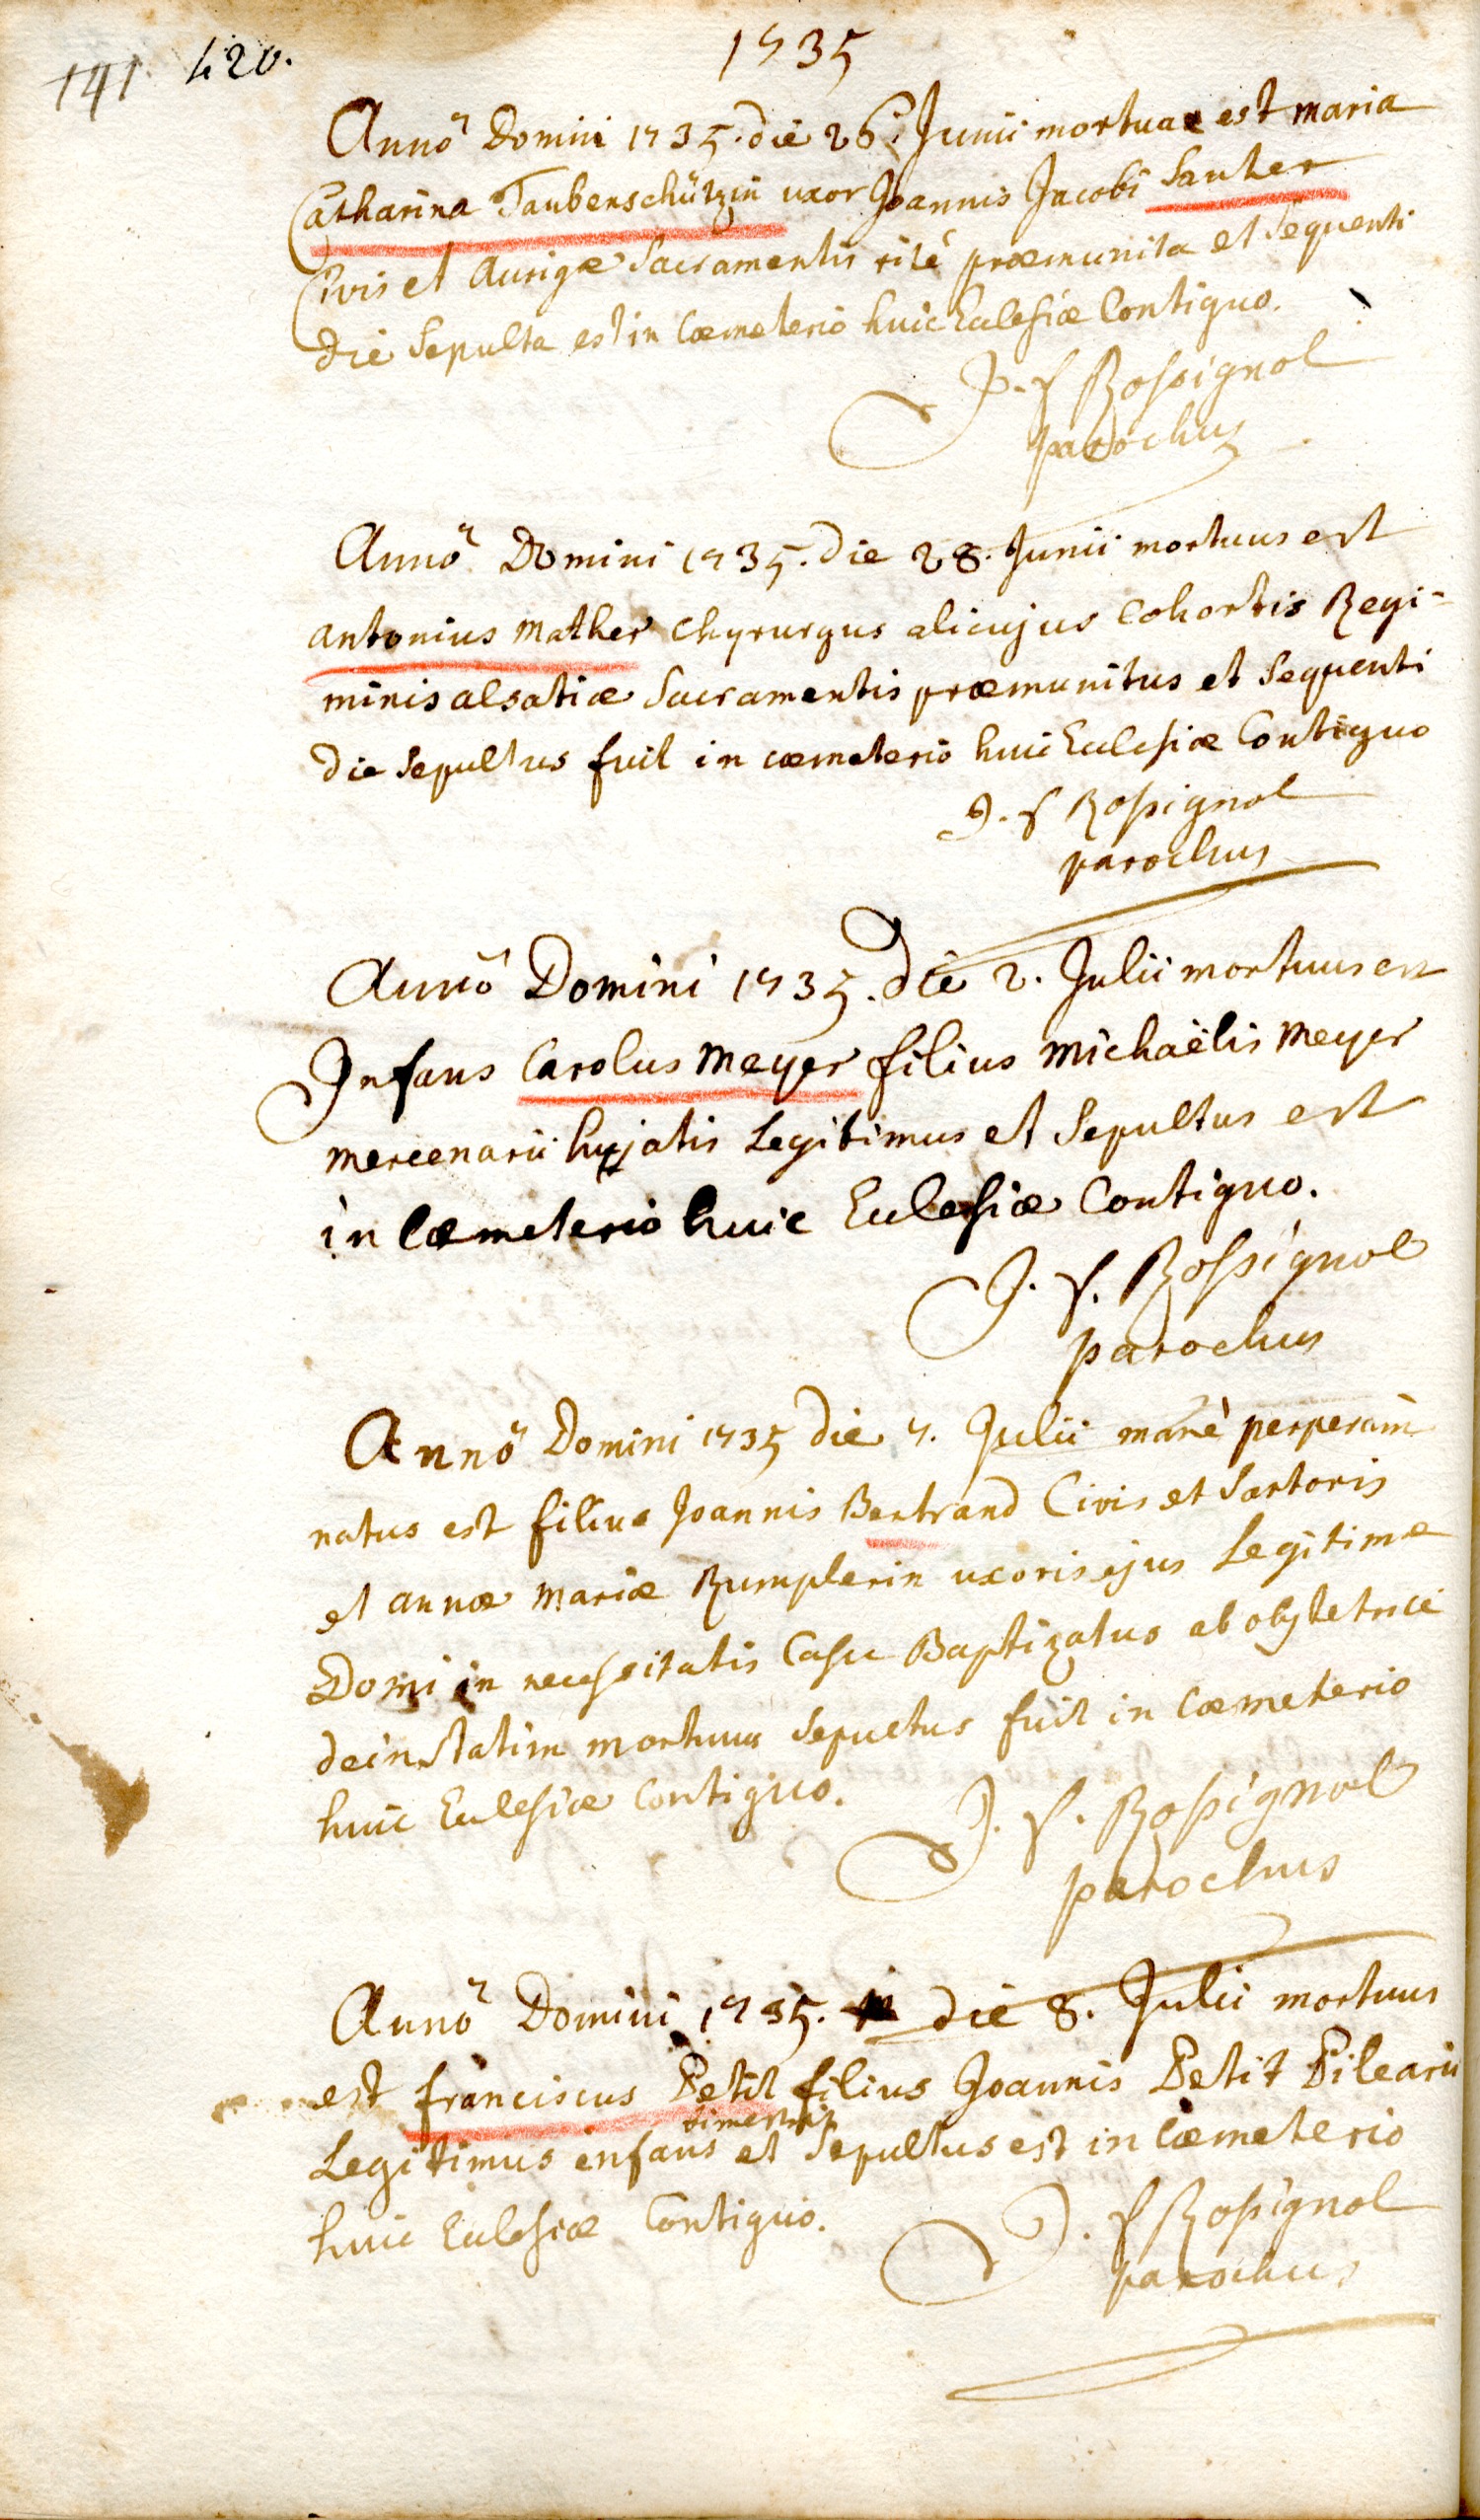 1735
141 420.
Annô Domini 1735. die 26. Junii mortua est maria
Catharina Taubenschützin uxor Joannis Jacobi Sauter
Civis et Aurigæ Sacramentis rité præmunita et Sequenti
die Sepulta est in Cœmeterio huic Ecclesiæ Contiguo.
J. f Rossignol
parochus
Annô Domini 1735. die 28. Junii mortuus est
antonius Mather Chyrurgus alicujus Cohortis Regi-
minis alsatiæ Sacramentis præmunitus et Sequenti
die Sepultus fuit in cœmeterio huic Ecclesiæ Contiguo
J. f Rossignol
parochus
Annô Domini 1735. die 2. Julii mortuus est
Infans Carolus Meyer filius Michaëlis Meyer
mercenarii hujatis Legitimus et Sepultus est
in Cœmeterio huic Ecclesiæ Contiguo.
J. f. Rossignol
parochus
Annô Domini 1735 die 7. Julii manè perperam
natus est filius Joannis Bertrand Civis et Sartoris
et annæ Mariæ Rumplerin uxoris ejus Legitimæ
Domi in necessitatis Casu Baptizatus ab obstetrice
dein statim mortuus Sepultus fuit in Cœmeterio
huic Ecclesiæ Contiguo.
J. f. Rossignol
parochus
Annô Domini 1735. die 8. Julii mortuus
est franciscus Petit filius Joannis Petit Pilearii
Legitimus infans bimestris et Sepultus est in Cœmeterio
huic Ecclesiæ Contiguo.
J. f Rossignol
parochus